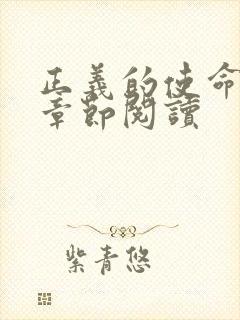 正義的使命
章節閱讀
紫青悠